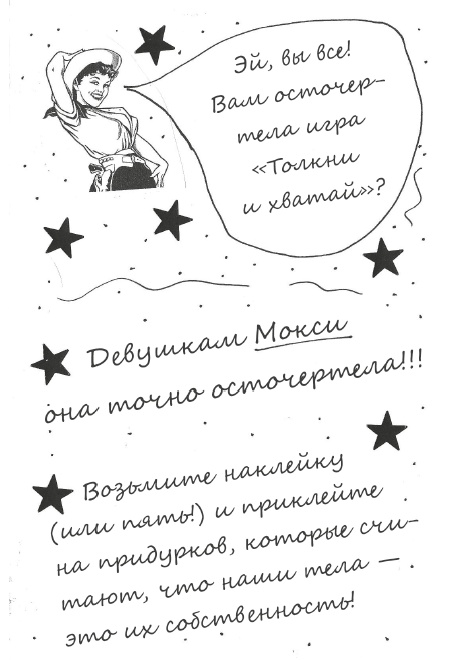 Эй, вы все!
Вам осточер-
тела игра
«Толкни
и хватай»?
Девушкам Мокси
она точно осточертела!!!
Возьмите наклейку
(или пять!) и приклейте
на придурков, которые счи-
тают, что наши тела —
это их собственность!